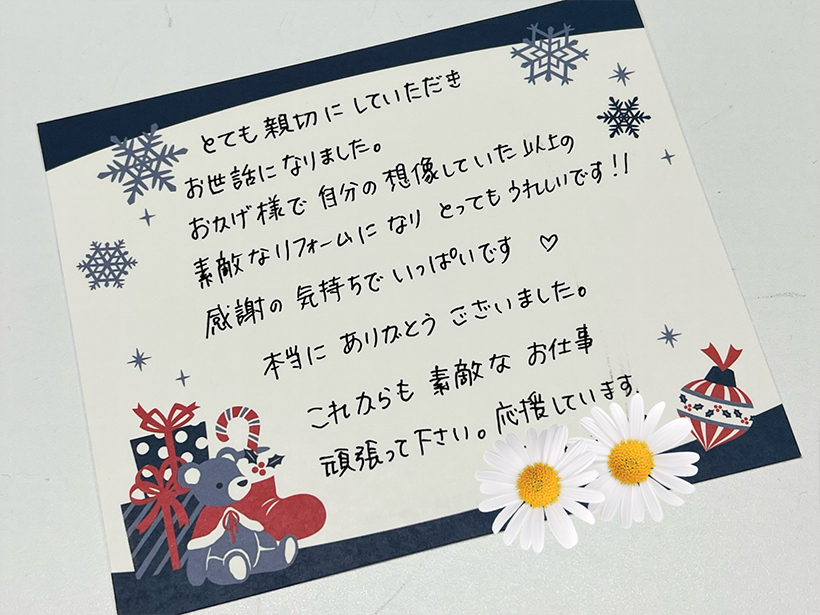 とても親切にしていただき
お世話になりました。
おかげ様で自分の想像していた以上の
素敵なリフォームになりとってもうれしいです!!
感謝の気持ちでいっぱいです♡
本当にありがとうございました。
これからも素敵なお仕事
頑張って下さい。応援しています.